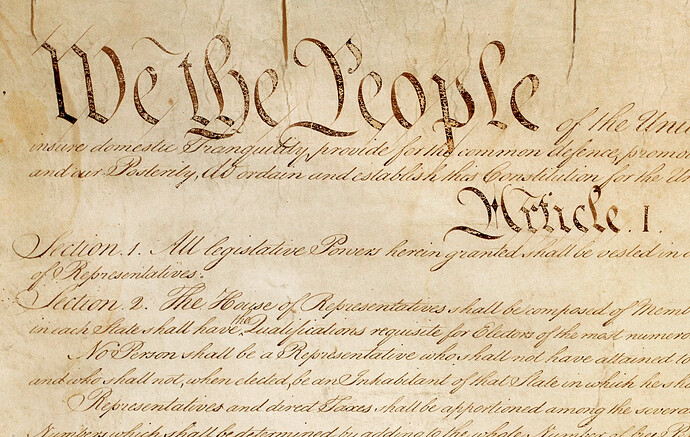 We the People of the Uni
insure domestic Tranquility, provide for the common defence, promo
and our Posterity, do ordain and establish this Constitution for the Un
Article. I.
Section. 1. All legislative Powers herein granted shall be vested in a
of Representatives.
Section. 2. The House of Representatives shall be composed of Mem
in each State shall have the Qualifications requisite for Electors of the most numero
No Person shall be a Representative who shall not have attained to
and who shall not, when elected, be an Inhabitant of that State in which he sha
Representatives and direct Taxes shall be apportioned among the severa
Numbers, which shall be determined by adding to the whole Number of